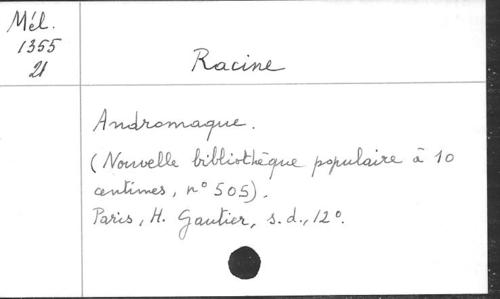 Mél.
1355
21
Racine
Andromaque.
(Nouvelle bibliothèque populaire à 10
centimes, n° 505).
Paris, H. Gautier, s.d., 12°.